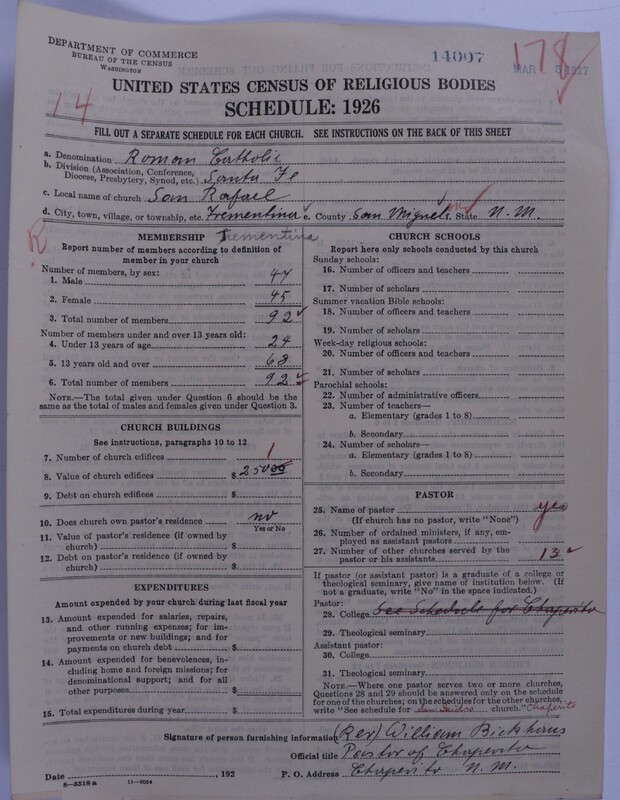 DEPARTMENT OF COMMERCE
BUREAU OF THE CENSUS
WASHINGTON
14007
178
MAR 1927
14
UNITED STATES CENSUS OF RELIGIOUS BODIES
SCHEDULE: 1926
FILL OUT A SEPARATE SCHEDULE FOR EACH CHURCH. SEE INSTRUCTIONS ON THE BACK OF THIS SHEET
a. Denomination Roman Catholic
b. Division (Association, Conference, Diocese, Presbytery, Synod, etc.) Santa Fe
c. Local name of church San Rafael
d. City, town, village, or township, etc. Trementina e. County San Miguel State N. M.
R
MEMBERSHIP Trementina
Report number of members according to definition of
member in your church
Number of members, by sex:
1. Male 47
2. Female 45
3. Total number of members 92
Number of members under and over 13 years old:
4. Under 13 years of age 24
5. 13 years old and over 68
6. Total number of members 92
NOTE.—The total given under Question 6 should be the
same as the total of males and females given under Question 3.
CHURCH BUILDINGS
See instructions, paragraphs 10 to 12
7. Number of church edifices 1
8. Value of church edifices $ 25000
9. Debt on church edifices $
10. Does church own pastor's residence no
Yes or No
11. Value of pastor's residence (if owned by
church) $
12. Debt on pastor's residence (if owned by
church) $
EXPENDITURES
Amount expended by your church during last fiscal year
13. Amount expended for salaries, repairs,
and other running expenses; for im-
provements or new buildings; and for
payments on church debt $
14. Amount expended for benevolences, in-
cluding home and foreign missions; for
denominational support; and for all
other purposes $
15. Total expenditures during year $
CHURCH SCHOOLS
Report here only schools conducted by this church
Sunday schools:
16. Number of officers and teachers
17. Number of scholars
Summer vacation Bible schools:
18. Number of officers and teachers
19. Number of scholars
Week-day religious schools:
20. Number of officers and teachers
21. Number of scholars
Parochial schools:
22. Number of administrative officers
23. Number of teachers—
a. Elementary (grades 1 to 8)
b. Secondary
24. Number of scholars—
a. Elementary (grades 1 to 8)
b. Secondary
PASTOR
25. Name of pastor yes
(If church has no pastor, write "None")
26. Number of ordained ministers, if any, em-
ployed as assistant pastors
27. Number of other churches served by the
pastor or his assistants 13
If pastor (or assistant pastor) is a graduate of a college or
theological seminary, give name of institution below. (If
not a graduate, write "No" in the space indicated.)
Pastor:
28. College See Schedule for Chaperito
29. Theological seminary
Assistant pastor:
30. College
31. Theological seminary
NOTE.—Where one pastor serves two or more churches,
Questions 28 and 29 should be answered only on the schedule
for one of the churches; on the schedules for the other churches,
write "See schedule for San Isidro church." Chaperito
Signature of person furnishing information (Rev) William Bickhaus
Official title Pastor of Chaperito
Date , 192 P. O. Address Chaperito N. M.
8—5518 a 11—9054